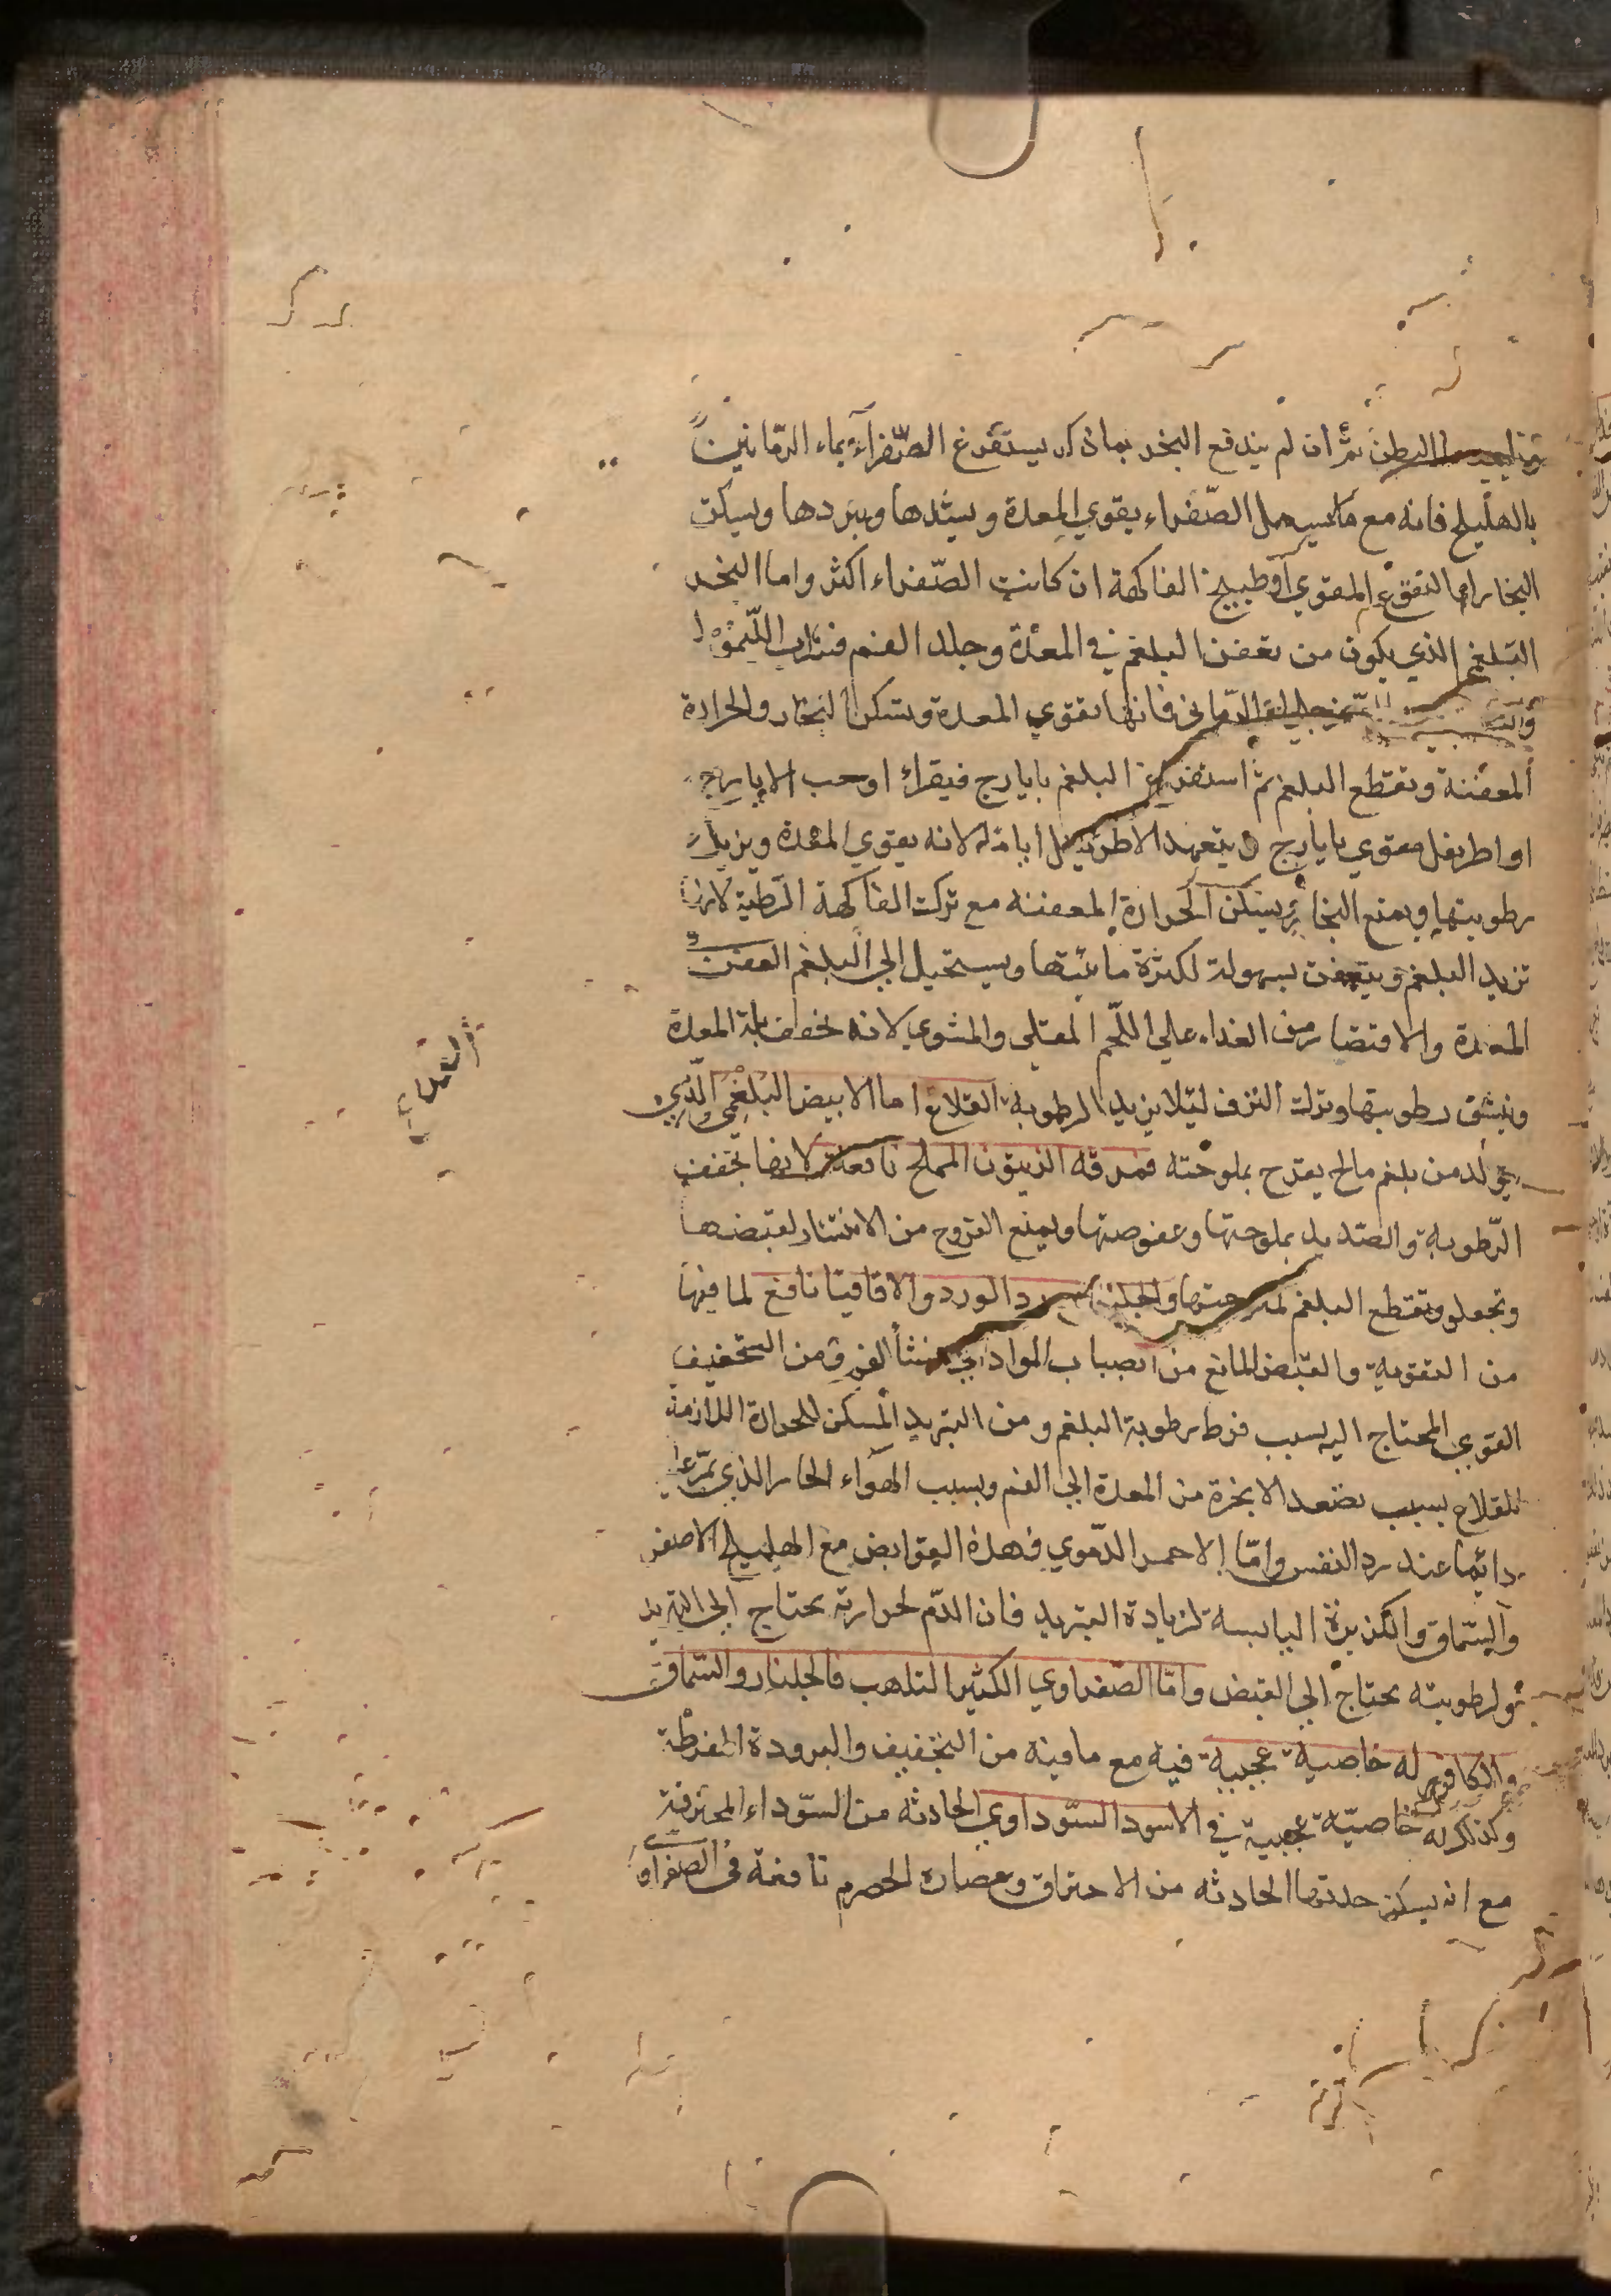 البطن ثم ان لم يندفع البخر بما ذكر يستفرغ الصّفرآء بماء الرّمانين
بالهليلج فانه مع ما يسهل الصّفراء يقوي المعدة ويشدها ويبردها ويسكن
البخار اما النقوع المقوي أو طبيخ الفاكهة ان كانت الصّفراء اكثر واما البخر
البلغمي الذي يكون من تعفن البلغم في المعدة وجلد الفم فشراب اللّيمو
فانها تقوي المعدة وتسكن البخار والحرارة
المعفنة وتقطع البلغم ثم استفراغ البلغم بايارج فيقراء او حب الايارج
او اطريفل مقوي بايارج ويتعهد الاطريفل اياما لانه يقوي المعدة ويزيل
رطوبتها ويمنع البخار يسكن الحرارة المعفنه مع ترك الفاكهة الرّطبة لانها
تزيد البلغم ويتعفن بسهولة لكثرة مائيتها ويستحيل الي البلغم العفن
المعدة والاقتصار من الغداء علي اللّحم المقلى والمشوي لانه يخفف بلة المعدة
وينشف رطوبتها وترك النزف لئلا يزيد الرطوبة القلاع اما الابيض البلغمي الّذي
يتولد من بلغم مالح يقرح بملوحته فمرقه الزيتون المملح نافعة لانها تجفف
الرّطوبة والصّديد بملوحتها وعفوصتها ويمنع القروح من الانتشار لقبضها
وتجلو وتقطع البلغم لملوحتها والجلنار الورد والاقاقيا نافع لما فيها
من التقوية والقبض المانع من انصباب المواد التي منشأ ومن التجفيف
القوي المحتاج اليه بسبب فرط رطوبة البلغم ومن التبريد المسكن للحرارة اللازمة
للقلاع بسبب تصعد الابخرة من المعدة الي الفم وبسبب الهوآء الحار الذي يمرّ عليه
دائما عند رد النفس وامّا الاحمر الدّموي فهذه القوابض مع الهليلج الاصفر
والسّماق والكزبرة اليابسة لزيادة التبريد فان الدّم لحرارته يحتاج الي التبريد
ولرطوبته يحتاج الي القبض وامّا الصّفراوي الكثير التلهب فالجلنار والسّماق
والكافور له خاصية عجيبة فيه مع ما فيه من التجفيف والبرودة المفرطة
وكذلك له خاصيّة عجيبة في الاسود السّوداوي الحادثه من السّوداء المحترقة
مع انه يسكن حدتها الحادثه من الاحتراق وعصارة الحصرم نافعة في الصفراوي